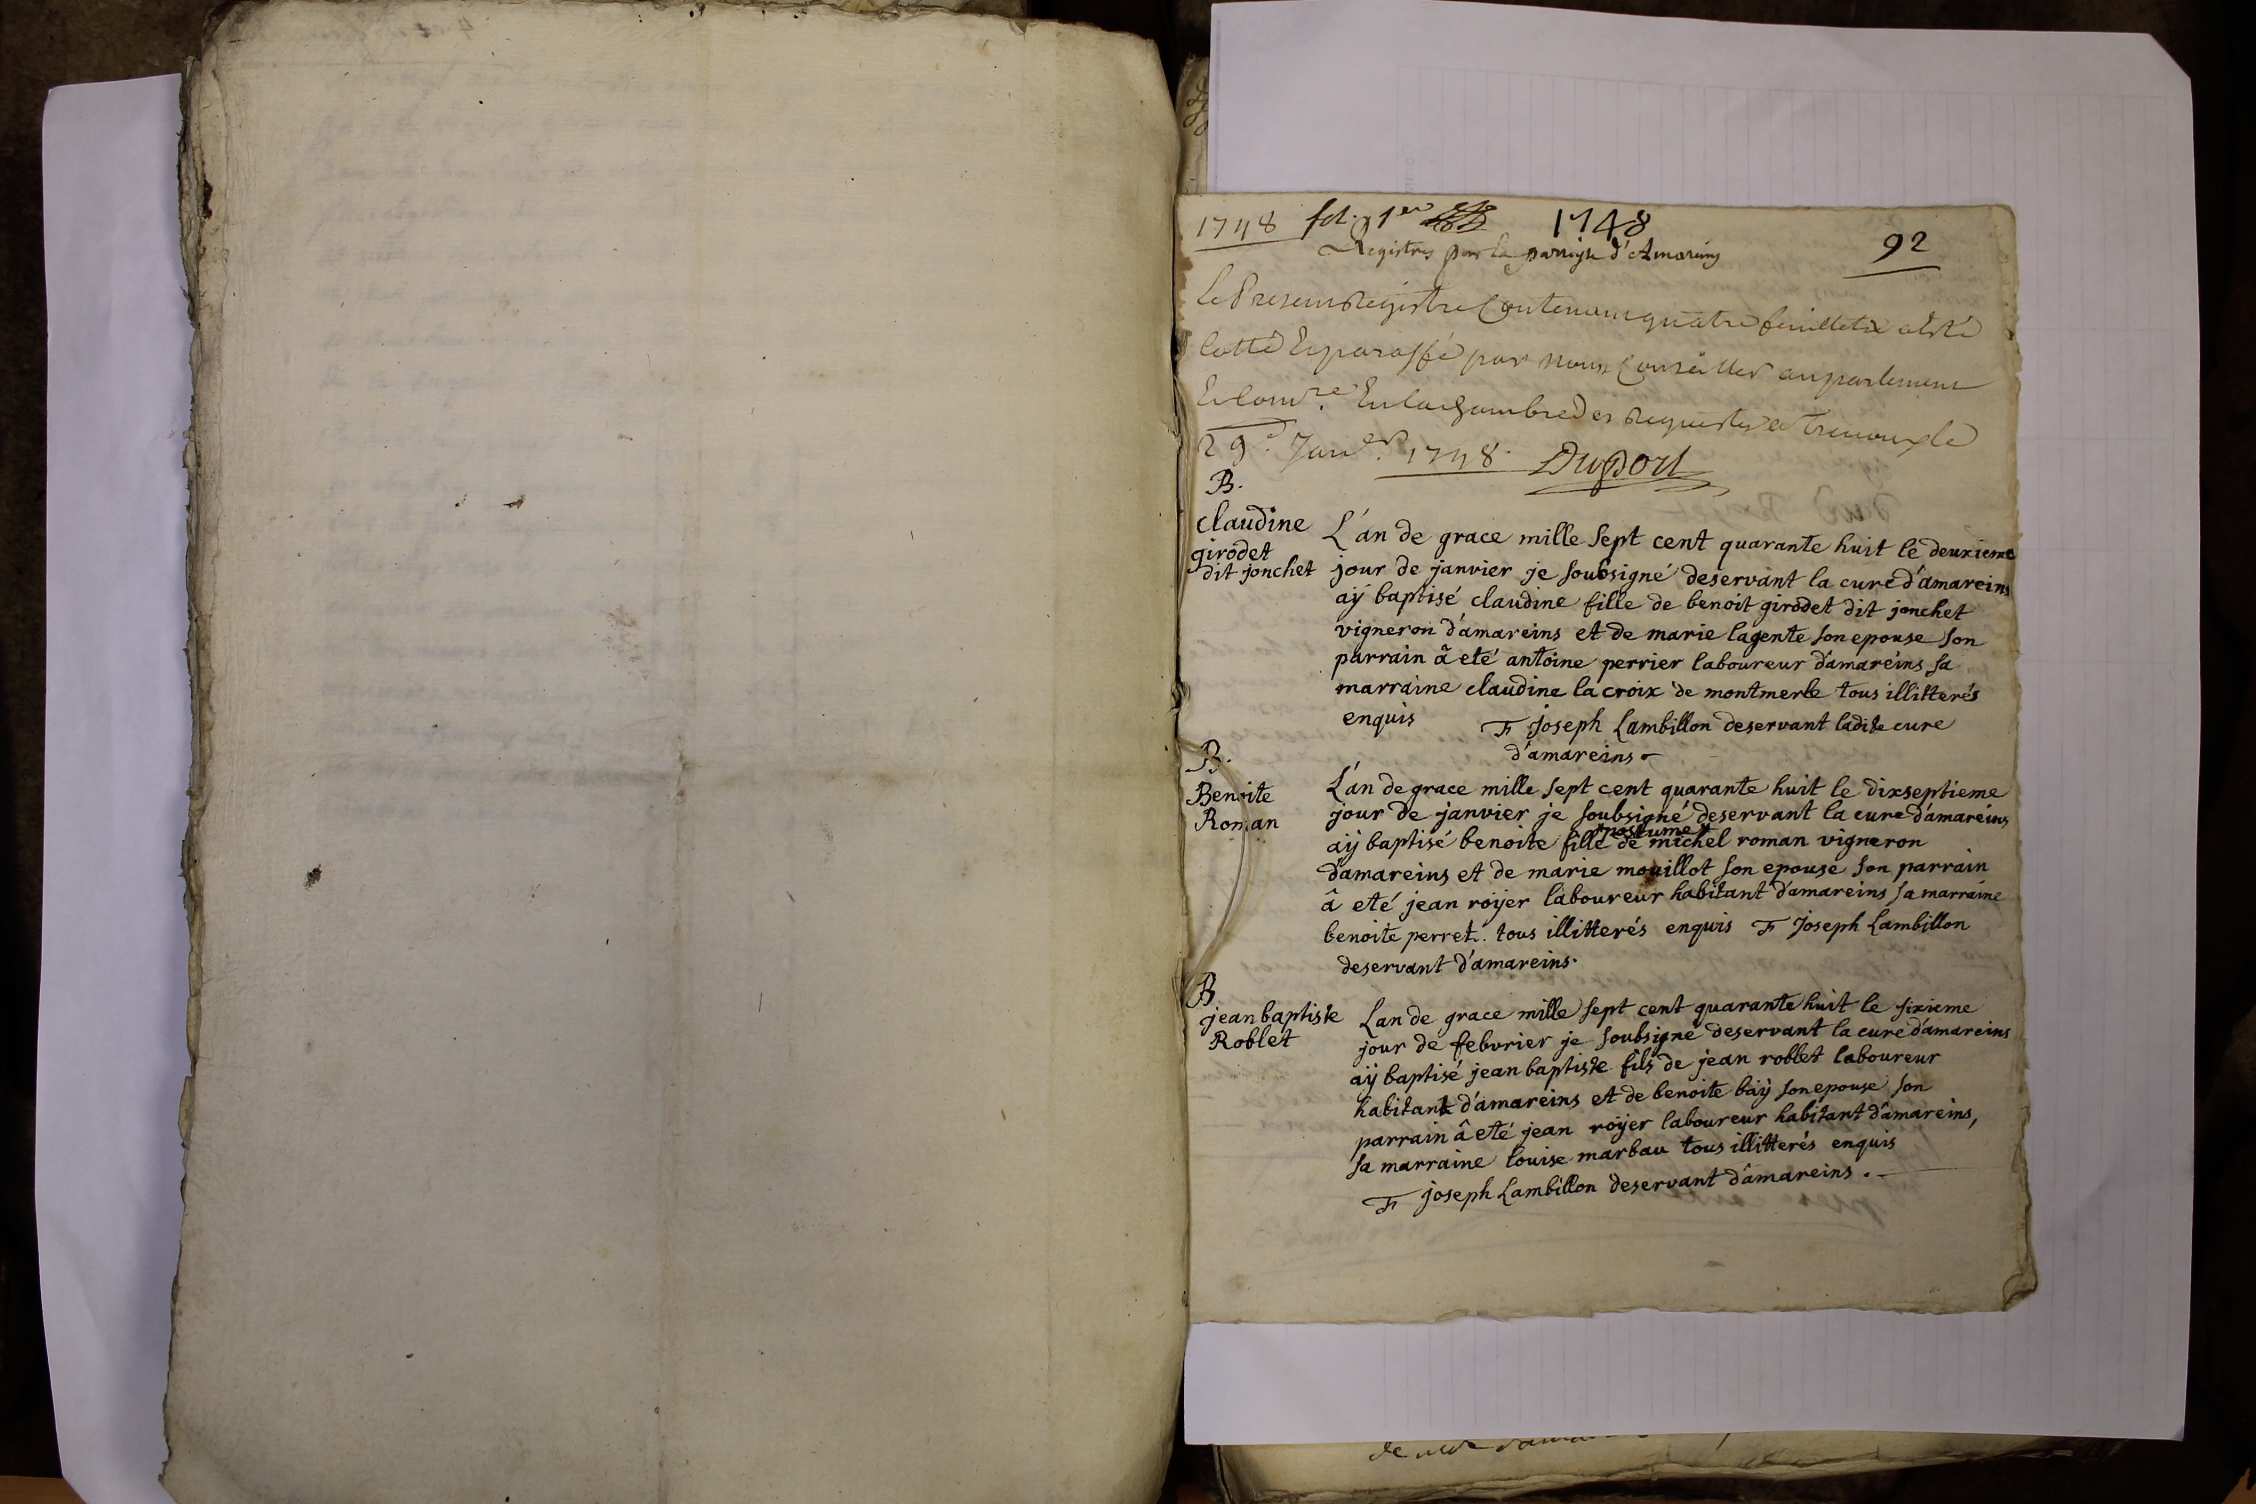 1748 fol. 1er 1748
92
Registres pour la parroisse d'Amareins
Le Present Registre Contenant quatre feuillets a esté
Cotté et paraffé par nous Conseiller au parlement
Et Comre. En la chambre des Requestes a Trevoux le
29e. Janer. 1748. Duport
B.
claudine
girodet
dit jonchet
L'án de grace mille sept cent quarante huit le deuxieme
jour de janvier je soubsigné deservant la cure d'amareins
aÿ baptisé claudine fille de benoit girodet dit jonchet
vigneron d'amareins et de marie lagente son epouse son
parrain â eté antoine perrier laboureur d'amareins sa
marraine claudine la croix de montmerle tous illitterés
enquis F joseph Lambillon deservant ladite cure
d'amareins
B.
Benoite
Roman
L'án de grace mille sept cent quarante huit le dixseptieme
jour de janvier je soubsigné deservant la cure d'amareins
postume
aÿ baptisé benoite fille de michel roman vigneron
d'amareins et de marie mouillot son epouse son parrain
â eté jean roÿer laboureur habitant d'amareins sa marraine
benoite perret. tous illitterés enquis F Joseph Lambillon
deservant d'amareins.
B
jean baptiste
Roblet
Lan de grace mille sept cent quarante huit le sixieme
jour de febvrier je soubsigné deservant la cure d'amareins
aÿ baptisé jean baptiste fils de jean roblet laboureur
habitant d'amareins et de benoite baÿ son epouse son
parrain â eté jean roÿer laboureur habitant d'amareins,
sa marraine louise marbau tous illitterés enquis
F joseph Lambillon deservant d'amareins.